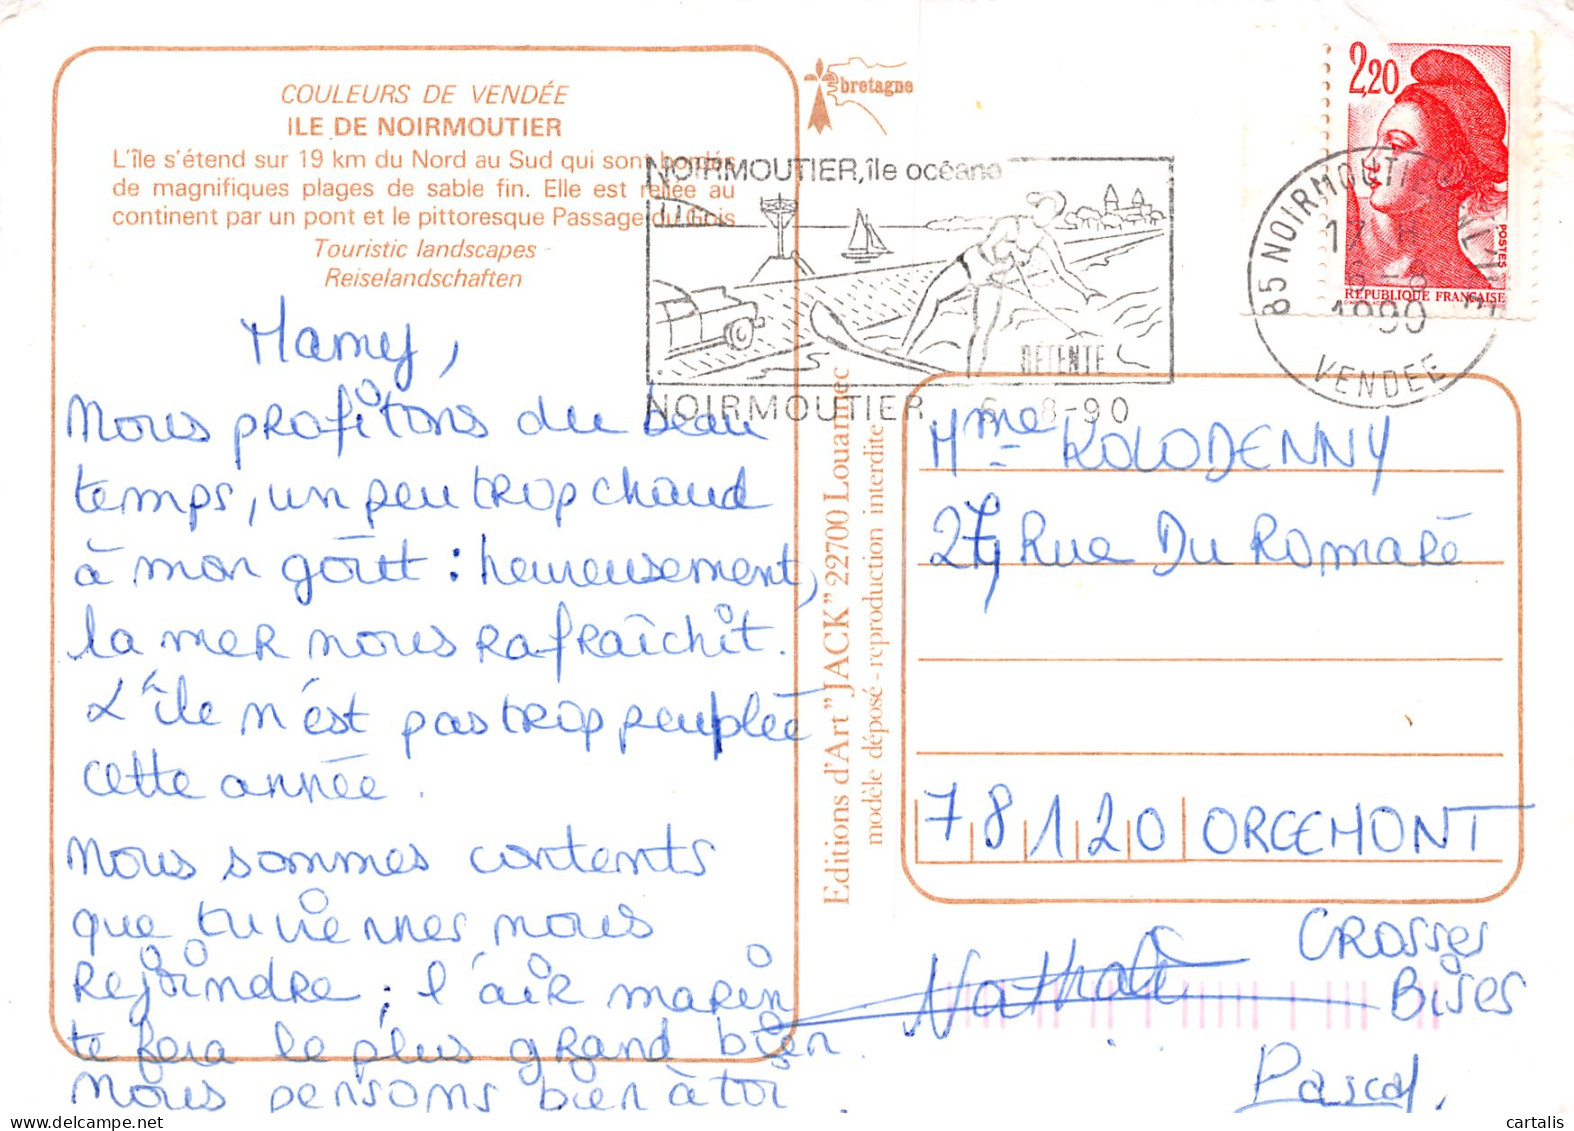 COULEURS DE VENDÉE
ILE DE NOIRMOUTIER
L'île s'étend sur 19 km du Nord au Sud qui sont bordés
de magnifiques plages de sable fin. Elle est reliée au
continent par un pont et le pittoresque Passage du Gois
Touristic landscapes
Reiselandschaften
Mamy,
Nous profitons du beau
temps, un peu trop chaud
à mon goût : heureusement,
la mer nous rafraîchit.
L'île n'est pas trop peuplée
cette année.
Nous sommes contents
que tu viennes nous
rejoindre ; l'air marin
te fera le plus grand bien.
Nous pensons bien à toi.
bretagne
NOIRMOUTIER, île océane
DÉTENTE
NOIRMOUTIER 6 -8-90
2,20
POSTES
REPUBLIQUE FRANÇAISE
85 NOIRMOUTIER
17 H
1990
VENDEE
Editions d'Art "JACK" 22700 Louannec
modèle déposé - reproduction interdite
Mme KOLODENNY
27 Rue Du Romaré
78120 ORCEMONT
Grosses
Bises
Nathalie
Pascal.
cartalis.com